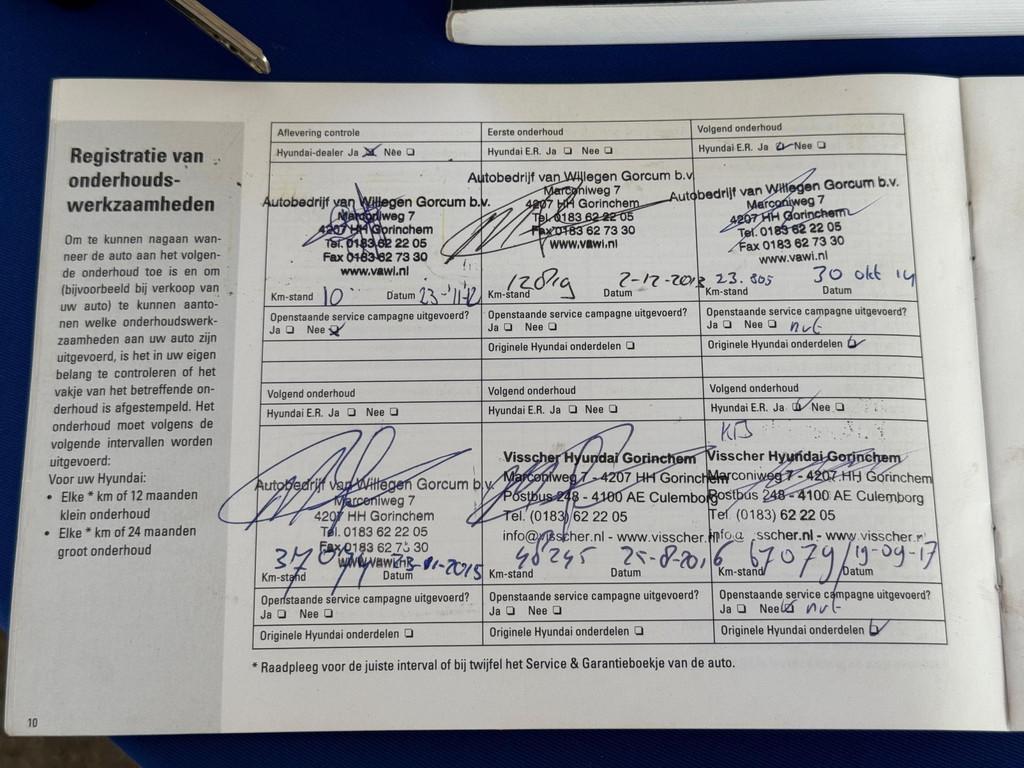 Registratie van
onderhouds-
werkzaamheden
Om te kunnen nagaan wan-
neer de auto aan het volgen-
de onderhoud toe is en om
(bijvoorbeeld bij verkoop van
uw auto) te kunnen aanto-
nen welke onderhoudswerk-
zaamheden aan uw auto zijn
uitgevoerd, is het in uw eigen
belang te controleren of het
vakje van het betreffende on-
derhoud is afgestempeld. Het
onderhoud moet volgens de
volgende intervallen worden
uitgevoerd:
Voor uw Hyundai:
• Elke * km of 12 maanden
klein onderhoud
• Elke * km of 24 maanden
groot onderhoud
10
Aflevering controle
Hyundai-dealer Ja ☒ Nee ☐
Autobedrijf van Willegen Gorcum b.v.
Marconiweg 7
4207 HH Gorinchem
Tel. 0183 62 22 05
Fax 0183 62 73 30
www.vawi.nl
Km-stand 10 Datum 23-11-12
Openstaande service campagne uitgevoerd?
Ja ☐ Nee ☒
Eerste onderhoud
Hyundai E.R. Ja ☐ Nee ☐
Autobedrijf van Willegen Gorcum b.v.
Marconiweg 7
4207 HH Gorinchem
Tel. 0183 62 22 05
Fax 0183 62 73 30
www.vawi.nl
Km-stand Datum 2-12-2013
Openstaande service campagne uitgevoerd?
Ja ☐ Nee ☐
Originele Hyundai onderdelen ☐
Volgend onderhoud
Hyundai E.R. Ja ☑ Nee ☐
Autobedrijf van Willegen Gorcum b.v.
Marconiweg 7
4207 HH Gorinchem
Tel. 0183 62 22 05
Fax 0183 62 73 30
www.vawi.nl
Km-stand 23.805 Datum 30 okt 14
Openstaande service campagne uitgevoerd?
Ja ☐ Nee ☐ nvt
Originele Hyundai onderdelen ☑
Volgend onderhoud
Hyundai E.R. Ja ☐ Nee ☐
Autobedrijf van Willegen Gorcum b.v.
Marconiweg 7
4207 HH Gorinchem
Tel. 0183 62 22 05
Fax 0183 62 73 30
www.vawi.nl
Km-stand Datum 23-11-2015
Openstaande service campagne uitgevoerd?
Ja ☐ Nee ☐
Originele Hyundai onderdelen ☐
Volgend onderhoud
Hyundai E.R. Ja ☐ Nee ☐
Visscher Hyundai Gorinchem
Marconiweg 7 - 4207 HH Gorinchem
Postbus 248 - 4100 AE Culemborg
Tel. (0183) 62 22 05
info@visscher.nl - www.visscher.nl
Km-stand 48245 Datum 25-8-2016
Openstaande service campagne uitgevoerd?
Ja ☐ Nee ☐
Originele Hyundai onderdelen ☐
Volgend onderhoud
Hyundai E.R. Ja ☑ Nee ☐
KB
Visscher Hyundai Gorinchem
Marconiweg 7 - 4207 HH Gorinchem
Postbus 248 - 4100 AE Culemborg
Tel (0183) 62 22 05
info@ sscher.nl - www.visscher.nl
Km-stand 67079 Datum 19-09-17
Openstaande service campagne uitgevoerd?
Ja ☐ Nee ☑ nvt
Originele Hyundai onderdelen ☑
* Raadpleeg voor de juiste interval of bij twijfel het Service & Garantieboekje van de auto.